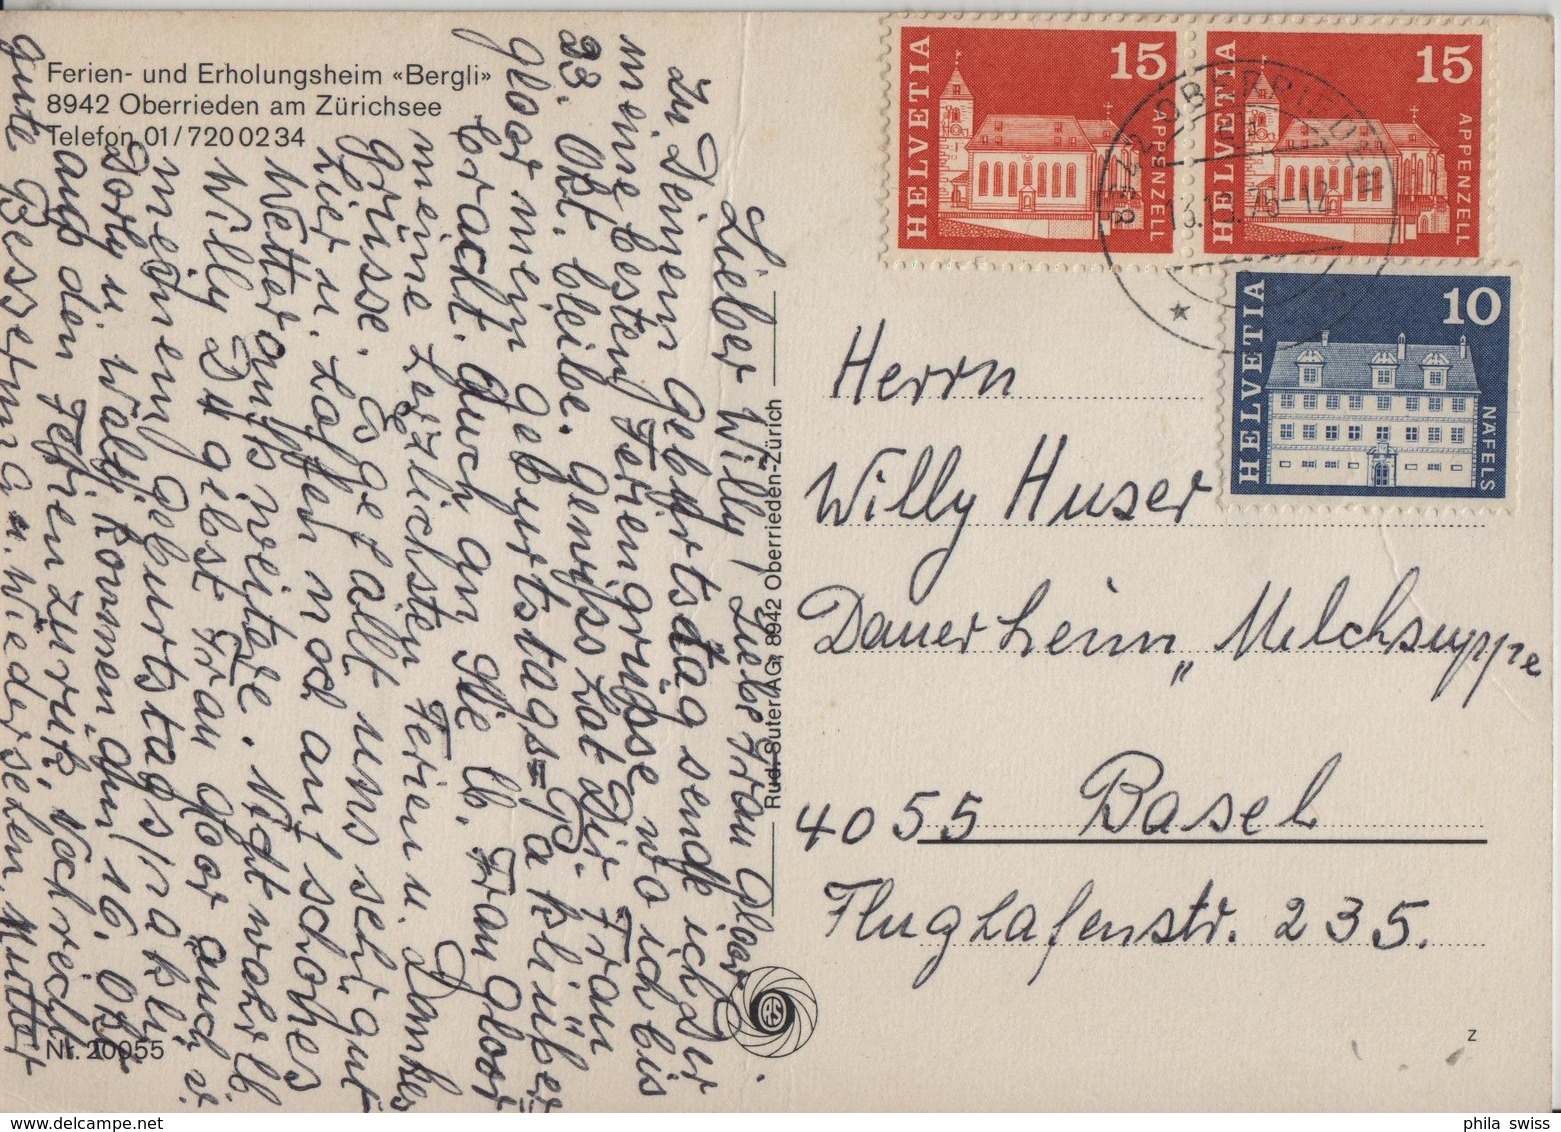 Ferien- und Erholungsheim «Bergli»
8942 Oberrieden am Zürichsee
Telefon 01/7200234
Lieber Willy, Liebe Frau Gloor.
Zu Deinem Geburtstag sende ich Dir
meine besten Feriengrüsse, wo ich bis
23. Okt. bleibe. Gewiss hat Dir Frau
Gloor mein Geburtstags=Päkli über=
bracht. Auch an Sie lb. Frau Gloor
meine herzlichsten Ferien u. Dankes
grüsse. Es gefällt uns sehr gut
hier u. hoffen noch auf schönes
Wetter aufs weitere. Nicht wahr lb
Willy Du gibst Frau Gloor auch v.
meinem Geburtstags/päkli
Dorly u. Walti kommen am 16. Okt.
aus den Ferien zurück. Noch recht
gute Besserung u. Wiedersehen. Mutter
Nr. 20055
Rud. Suter AG, 8942 Oberrieden-Zürich
HELVETIA 15 APPENZELL
HELVETIA 15 APPENZELL
HELVETIA 10 NÄFELS
8942 OBERRIEDEN
Herrn
Willy Huser
Dauerheim „Milchsuppe
4055 Basel
Flughafenstr. 235.
Z
phila swiss